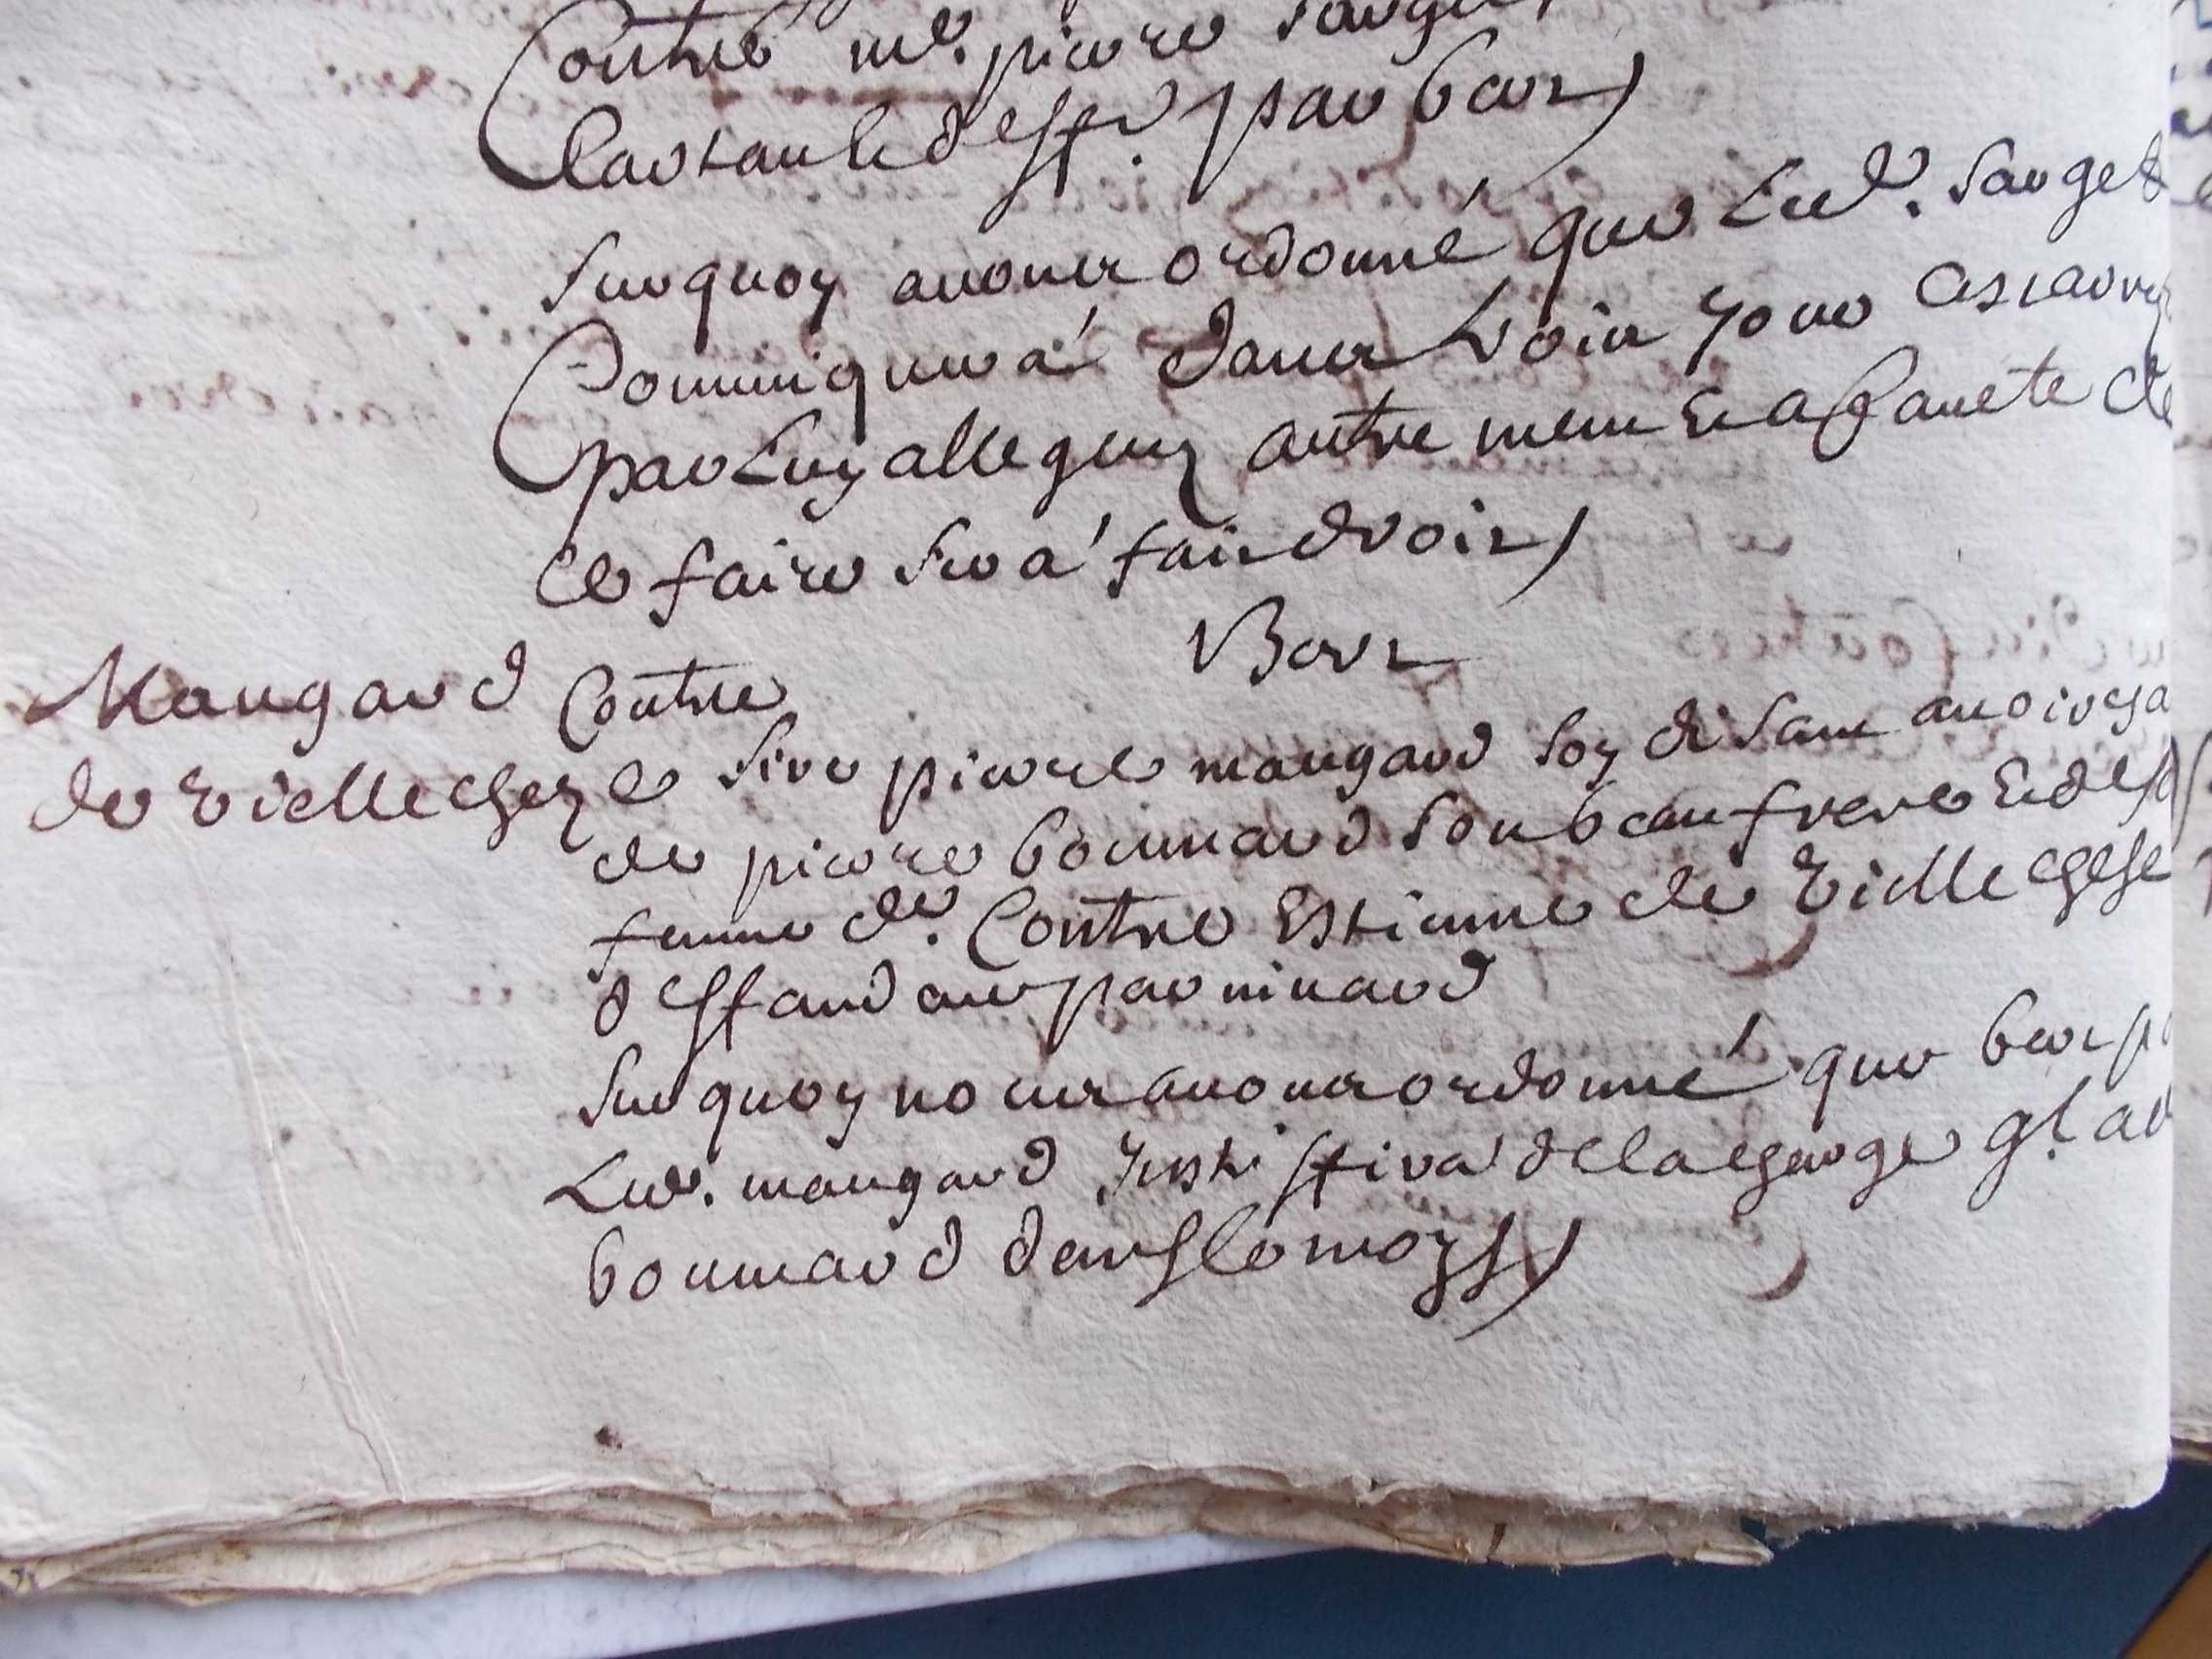 Contre me. pierre sauget
Lartault deffer. par beer
Surquoy avons ordonné que Led. sauget
Communiquera dans hoir
par Luy allegues autrement Et a faute de
Ce faire sera fait droit
Beer
Maugard Contre
de Vielleschez
Le Sire pierre maugard soy disant avoir cha
de pierre bonnard son beau frere Et de sa
femme der. Contre Estienne de Viellechese
deffandeur par minard
Surquoy nous avons ordonné que beer p
Led. maugard Justiffira de la charge
bonnard dans le moys